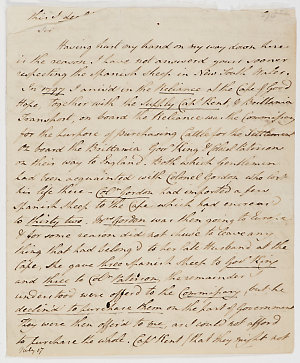 Sir
Having hurt my hand on my way down here
is the reason I have not answered yours sooner
respecting the Spanish Sheep in New South Wales.
In 1797 I arrived in the Reliance at the Cape of Good
Hope, Together with the Supply Capt Kent & Britannia
Transport, on board the Reliance was the Commissary
for the purpose of Purchasing Cattle for the Settlement
On board the Britannia Govr King & Col Paterson
on their way to England. Both which Gentlemen
had been acquainted with Colonel Gordon who lost
his life there - Coln Gordon had imported a few
Spanish Sheep to the Cape which had increased
to thirty two, Mrs Gordon was then going to Europe
& for some reason did not chuse to leave any
thing that had belong'd to her late Husband at the
Cape. She gave three Spanish Sheep to Govr King
and three to Coln Paterson, the remainder I
understood were offer'd to the Commissary, but he
declin'd to purchase them on the part of Government
They were then offer'd to me, as I could not afford
to purchase the whole, Capt Kent (that they might not